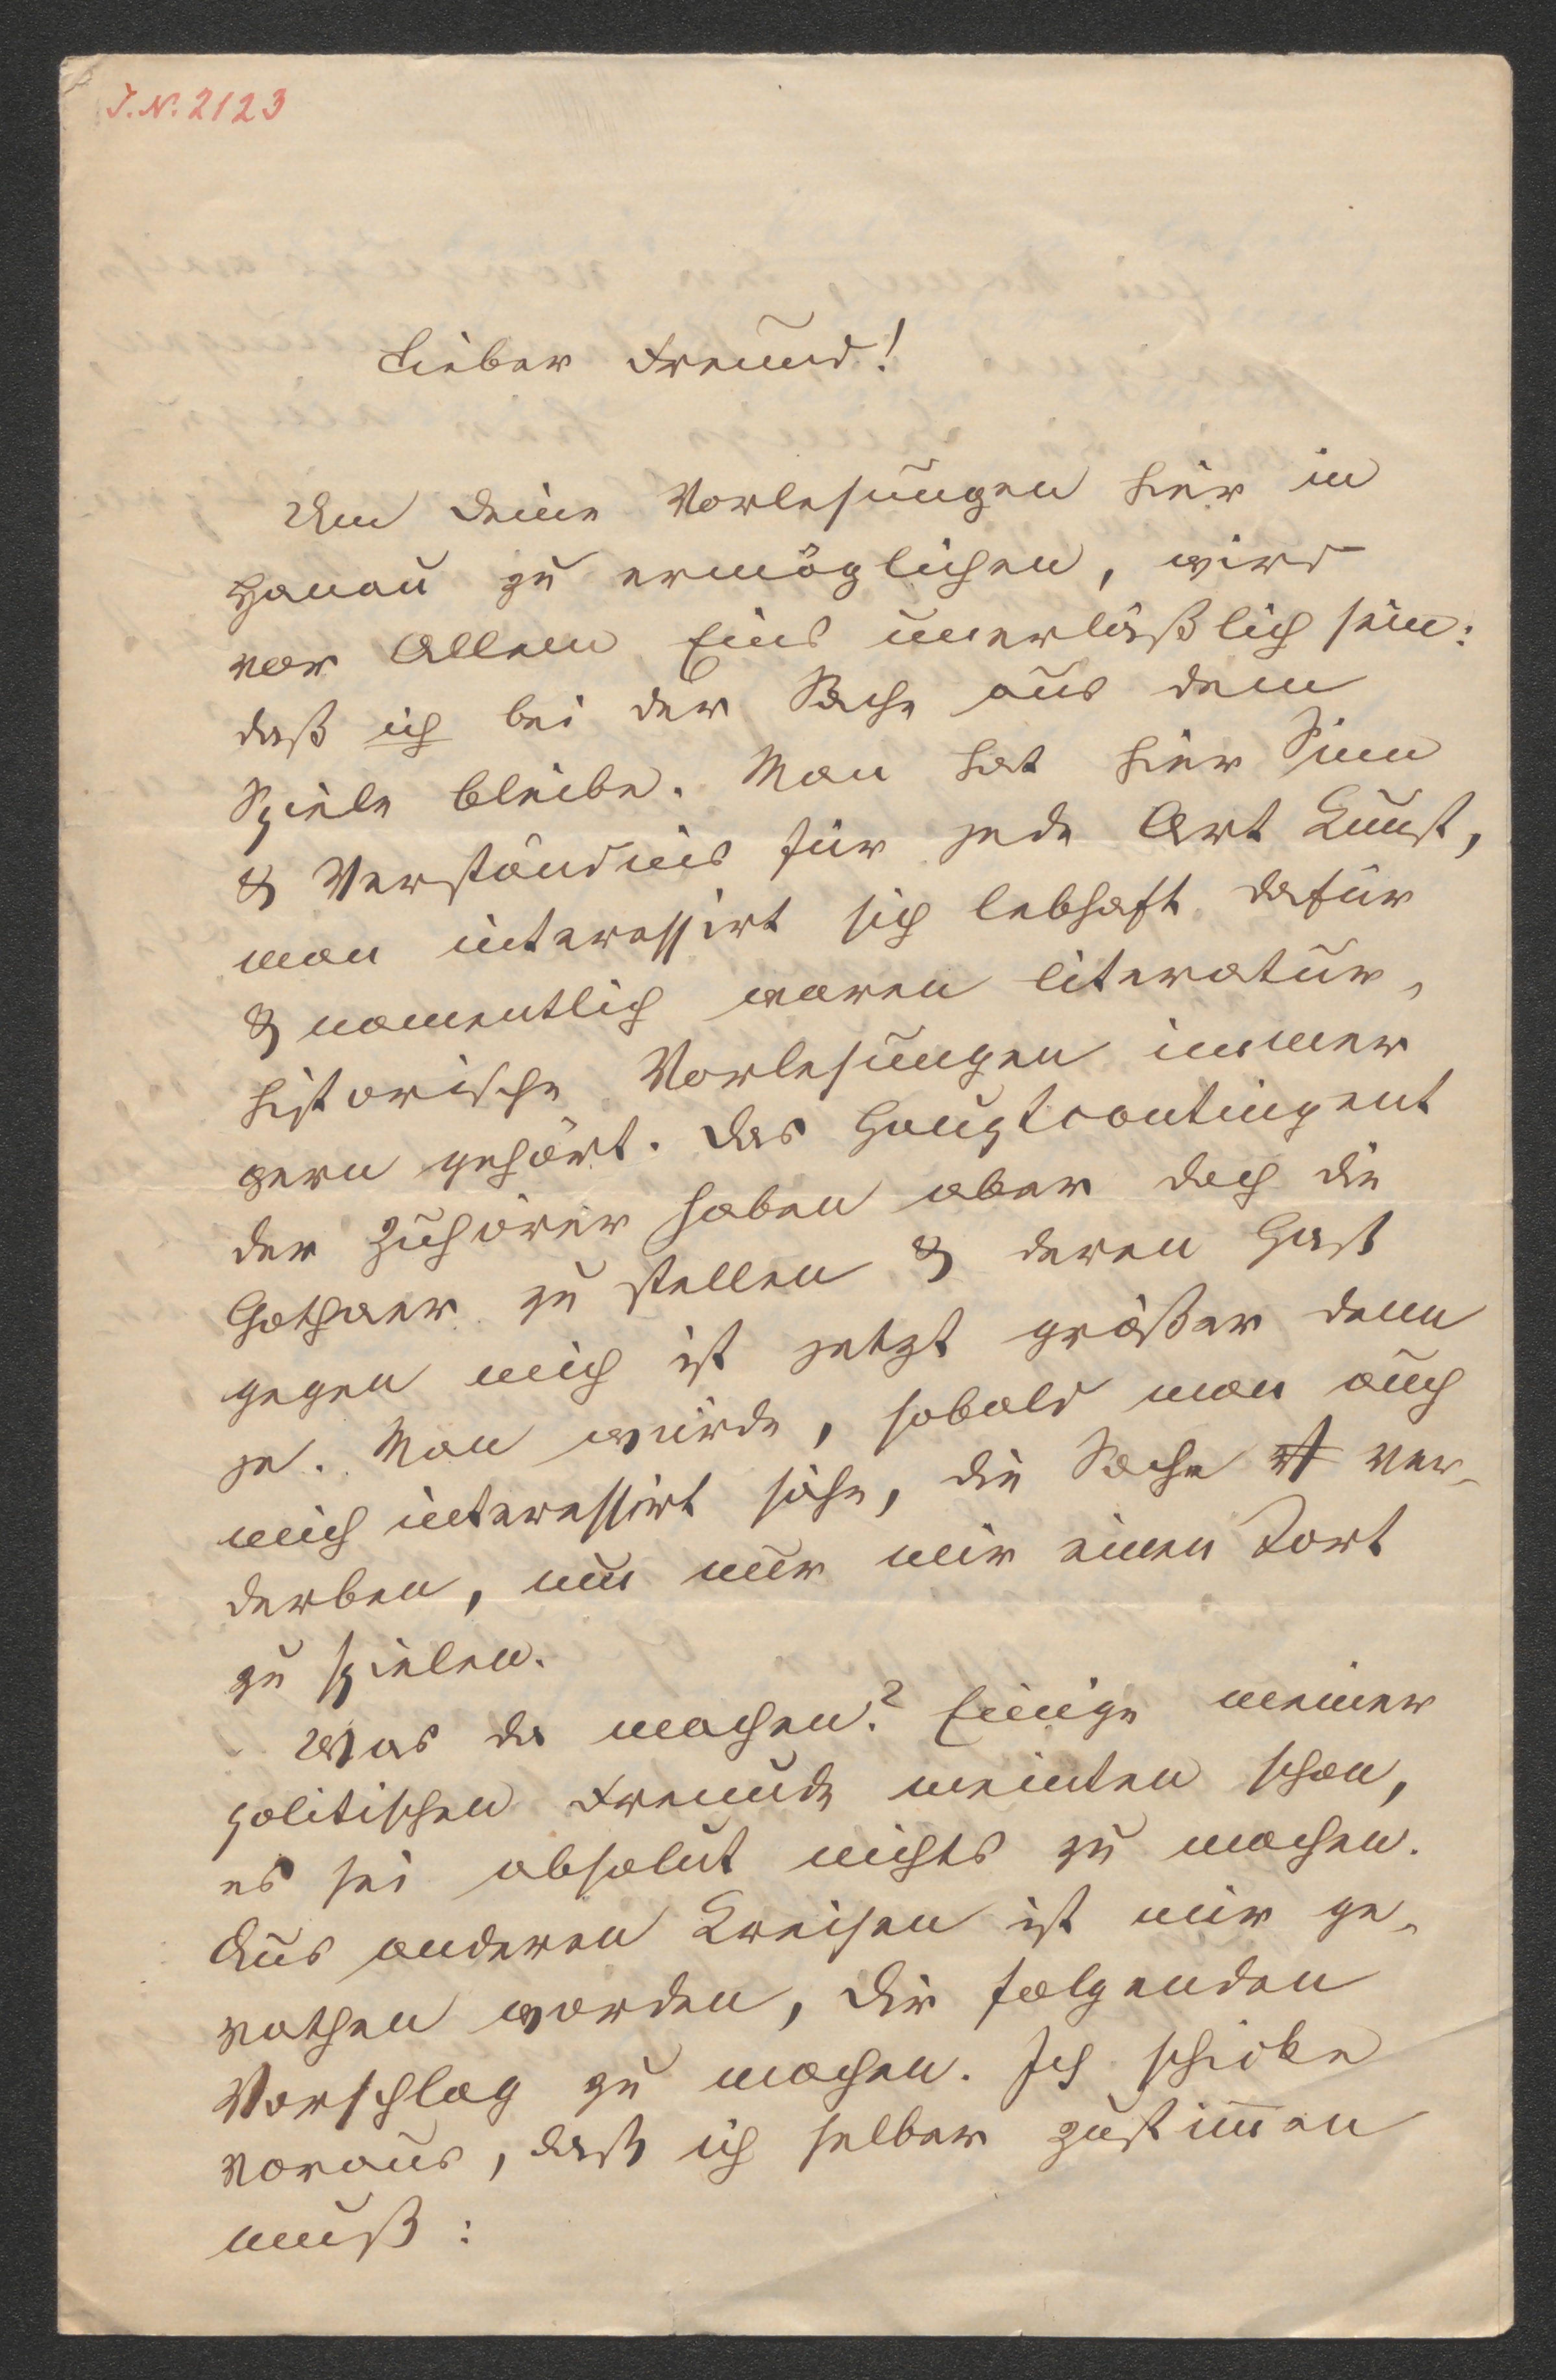 J.N. 2123
Lieber Freund!
Um Deine Vorlesungen hier in
Hanau zu ermöglichen, wird
vor Allem Eins unerläßlich sein:
daß ich bei der Sache aus dem
Spiele bleibe. Man hat hier Sinn
& Verständnis für jede Art Kunst,
man interessirt sich lebhaft dafür
& namentlich waren literatur-
historische Vorlesungen immer
gern gehört. Das Hauptcontingent
der Zuhörer haben aber doch die
Gothaer zu stellen & deren Haß
gegen mich ist jetzt größer denn
je. Man würde, sobald man auch
mich interessirt sähe, die Sache ver-
derben, um nur mir einen Tort
zu spielen.
Was da machen? Einige meiner
politischen Freunde meinten schon,
es sei absolut nichts zu machen.
Aus anderen Kreisen ist mir ge-
rathen worden, Dir folgenden
Vorschlag zu machen. Ich schicke
voraus, daß ich selber zustim̅en
muß: